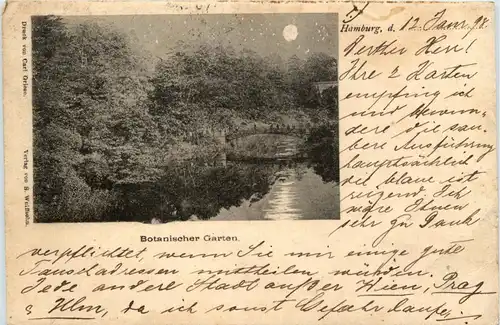 Hamburg, d. 12 Jan. 98.
Werther Herr!
Ihre 2 Karten
empfing ich
und bewun-
dere die sau-
bere Ausführung
hauptsächlich
die blaue ist
reizend. Ich
wäre Ihnen
sehr zu Dank
verpflichtet, wenn Sie mir einige gute
Tauschadressen mittheilen würden.
Jede andere Stadt außer Wien, Prag
& Ulm, da ich sonst Gefahr laufe,
Botanischer Garten.
Druck von Carl Griese.
Verlag von S.